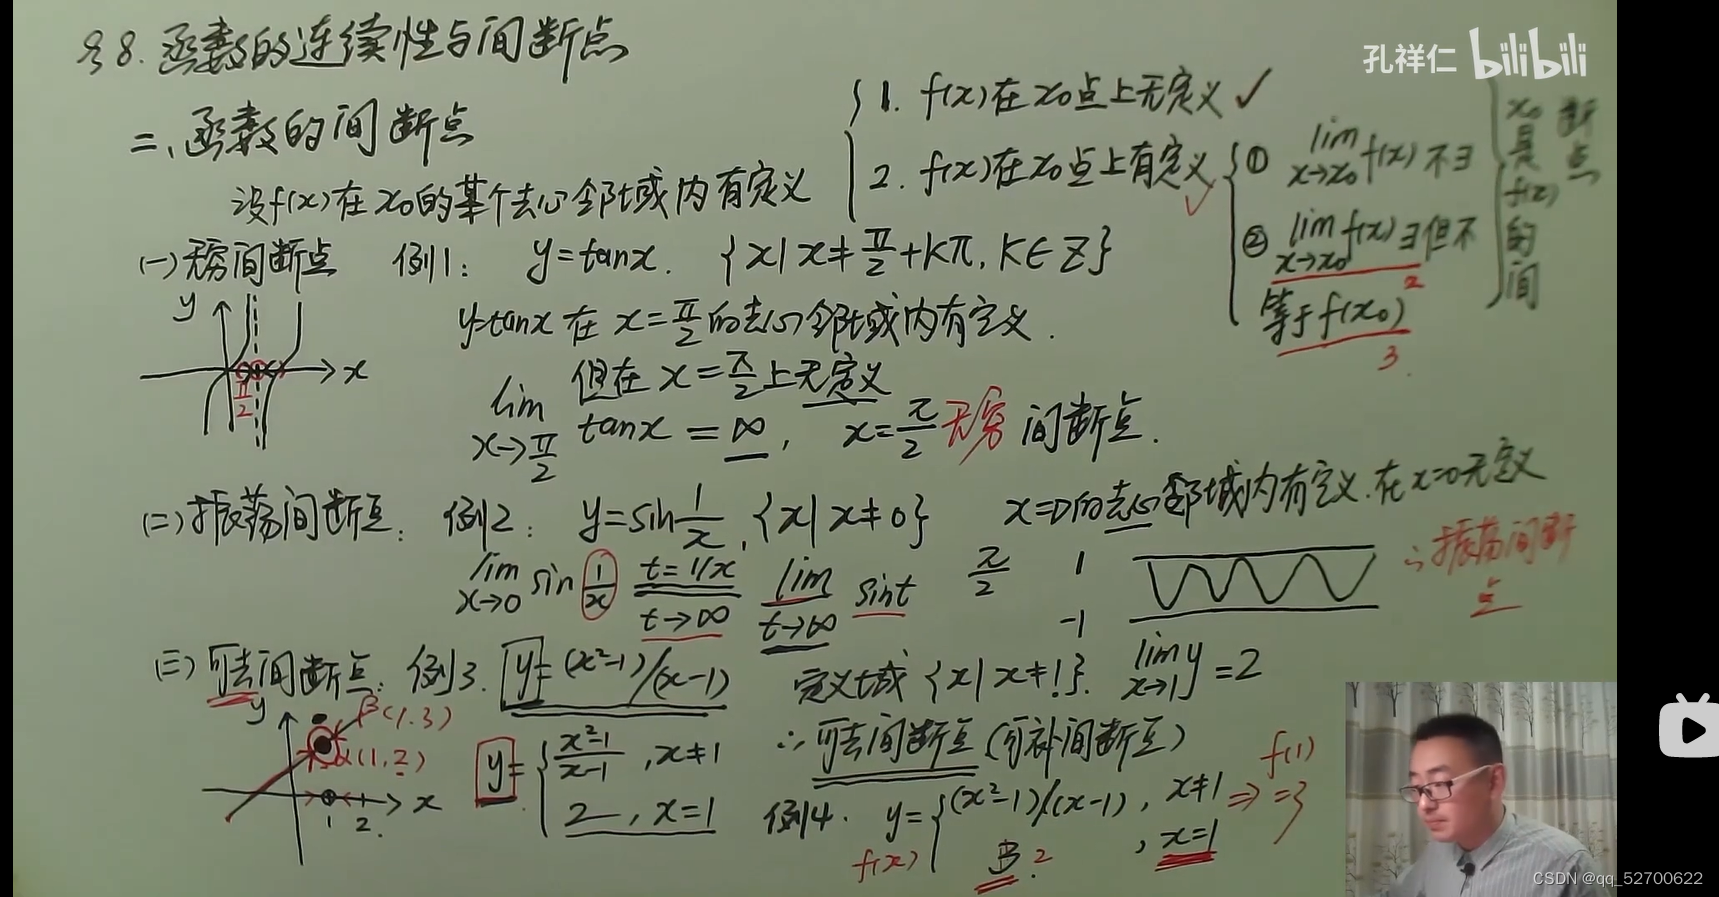 §8. 函数的连续性与间断点
孔祥仁 bilibili
二、函数的间断点
设f(x)在x₀的某个去心邻域内有定义
1. f(x)在x₀点上无定义 ✓
2. f(x)在x₀点上有定义 ✓
① lim x→x₀ f(x) 不∃
② lim x→x₀ f(x)∃但不
2
等于f(x₀)
3
x₀是f(x)的间
断点
(一)无穷间断点 例1: y=tanx. {x|x≠π/2+kπ, k∈Z}
y=tanx 在 x=π/2的去心邻域内有定义.
但在 x=π/2上无定义
lim x→π/2 tanx = ∞, x=π/2 无穷间断点.
y
x
π/2
(二)振荡间断点: 例2: y=sin1/x, {x|x≠0} x=0的去心邻域内有定义.在x=0无定义
lim x→0 sin 1/x t=1/x t→∞ lim t→∞ sint π/2 1 -1
∴振荡间断点
(三)可去间断点: 例3. y=(x²-1)/(x-1) 定义域 {x|x≠1}. lim x→1 y=2
y
B(1.3)
α(1,2)
x
1 2.
y= { x²-1/x-1 , x≠1
2 , x=1
∴可去间断点(可补间断点)
例4. y= { (x²-1)/(x-1), x≠1 ⇒ f(1)=3
f(x) 3? , x=1
CSDN @qq_52700622